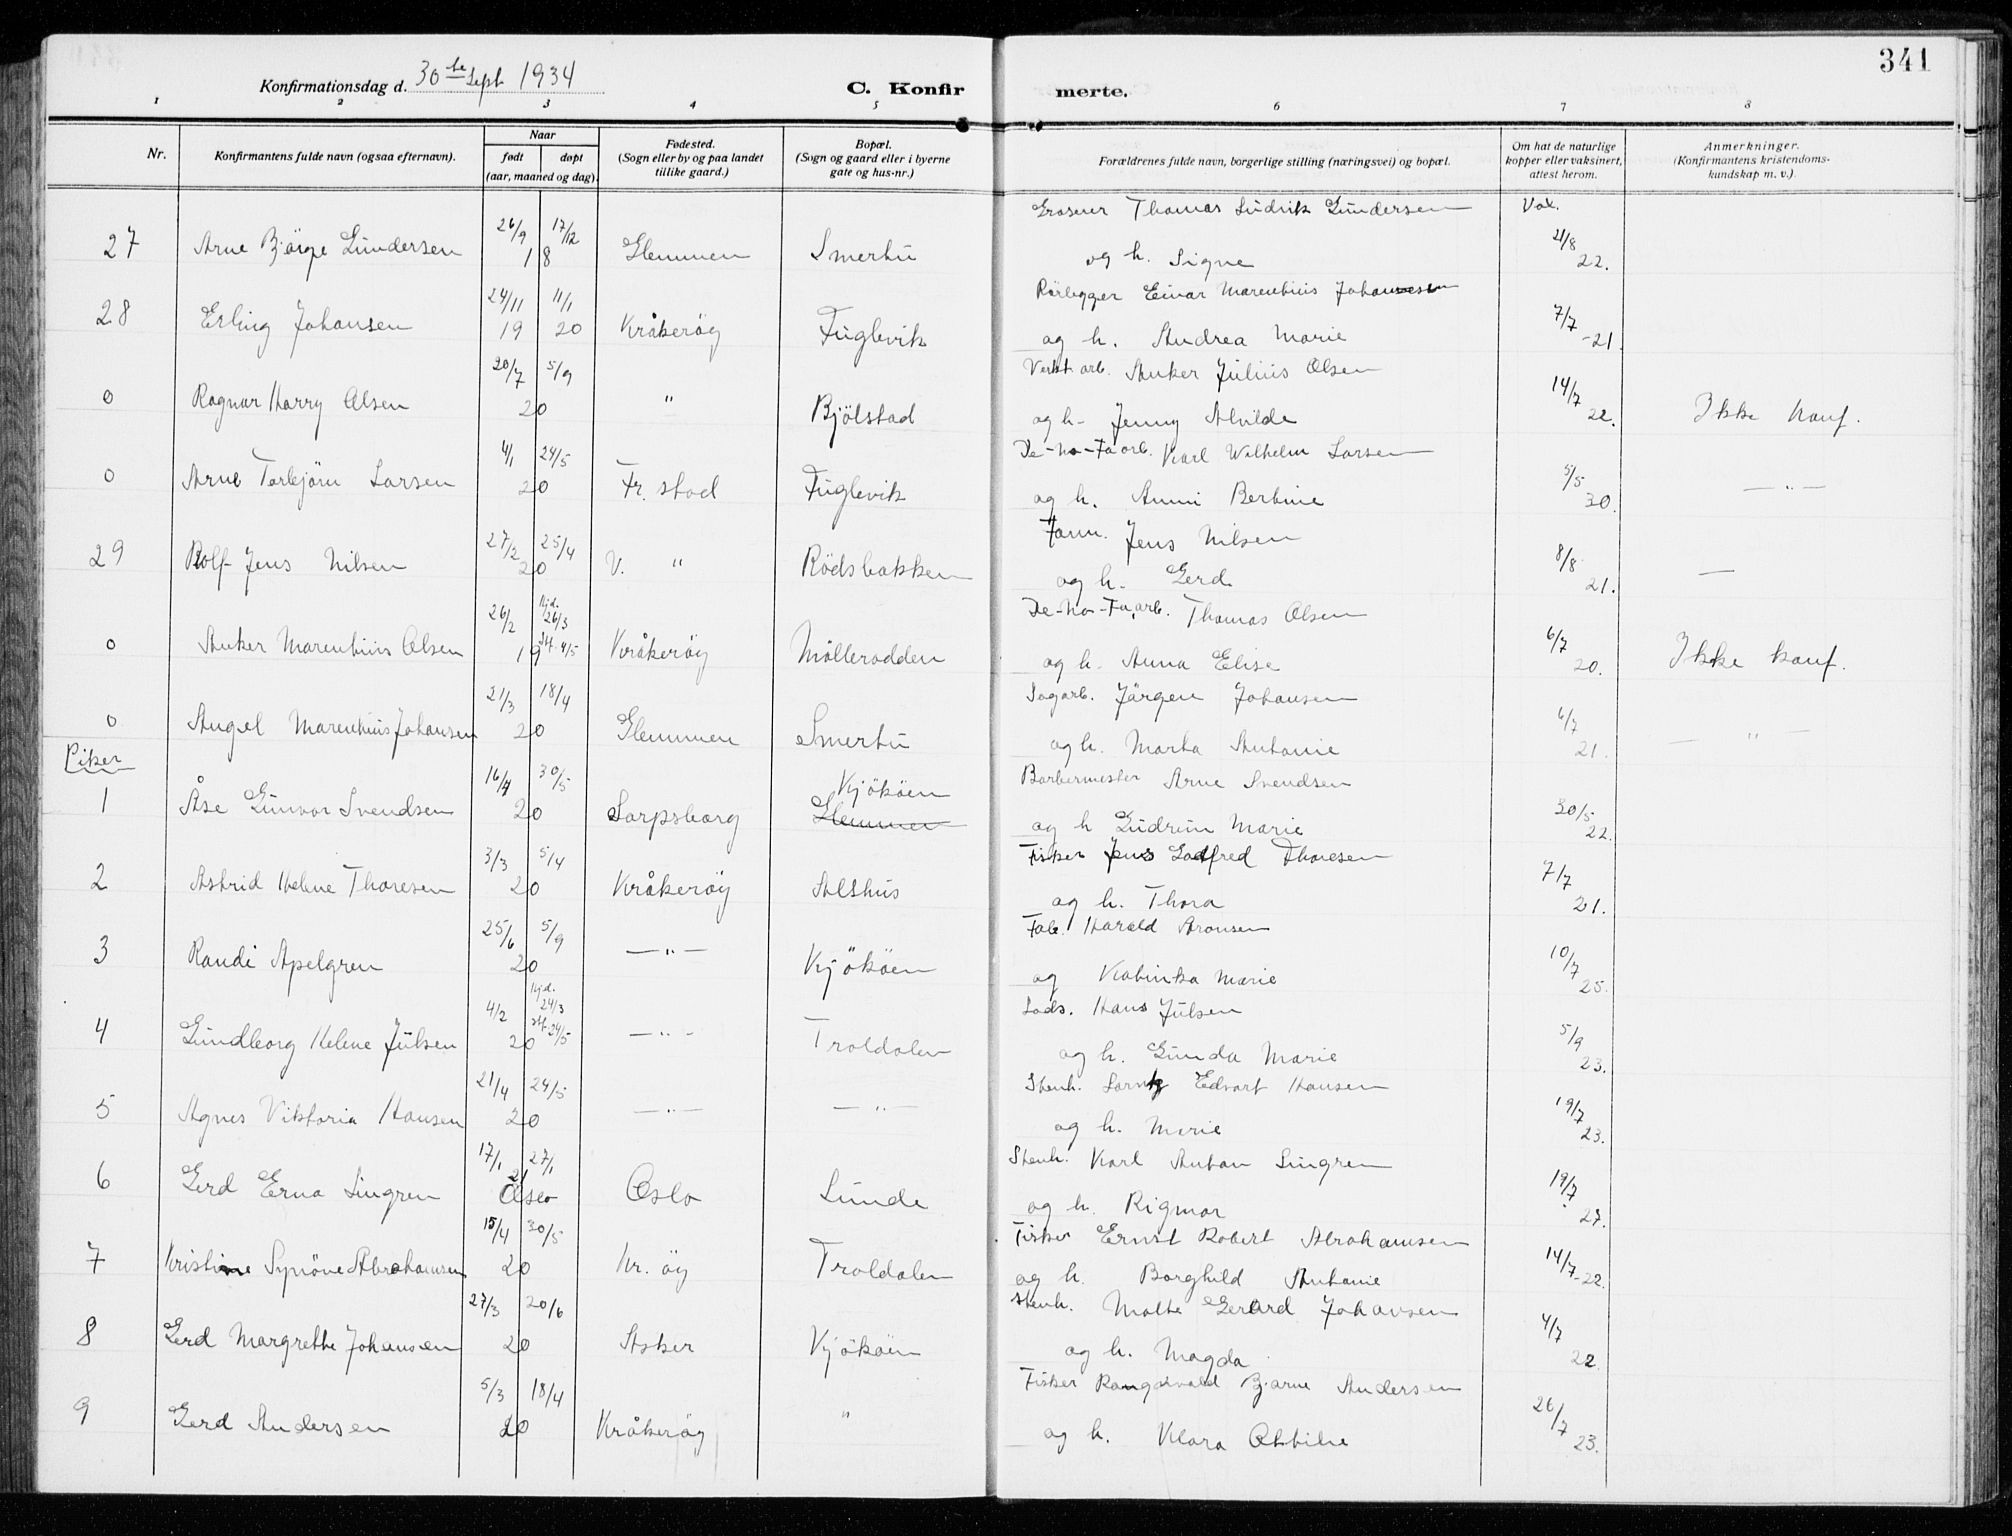 341
Konfirmationsdag d. 30te Sept 1934
C. Konfirmerte.
1 2 3 4 5 6 7 8
Nr.
Konfirmantens fulde navn (ogsaa efternavn).
Naar
født
døpt
(aar, maaned og dag).
Fødested.
(Sogn eller by og paa landet
tillike gaard.)
Bopæl.
(Sogn og gaard eller i byerne
gate og hus-nr.)
Forældrenes fulde navn, borgerlige stilling (næringsvei) og bopæl.
Om hat de naturlige
kopper eller vaksinert,
attest herom.
Anmerkninger.
(Konfirmantens kristendoms-
kundskap m. v.).
Thomas Ludvik Gundersen Vax.
27 Arne Bjørge Gundersen 26/9 17/12 18 Glemmen Smertu og h. Signe 21/8 22.
Rørlegger Einar Marenthius Johannesen
28 Erling Johansen 24/11 19 11/1 20 Kråkerøy Fuglevik og h. Andrea Marie 7/7 -21.
Verkst arb. Anker Julius Olsen
0 Ragnar Harry Olsen 20/7 5/9 20 " Bjölstad og h- Jenny Alvilde 14/7 22. Ikke konf.
De-No-Fa arb. Karl Wilhelm Larsen
0 Arne Torbjörn Larsen 4/1 24/5 20 Fr. stad Fuglevik og h. Anni Bertine 5/5 30. — " —
Form. Jens Nilsen
29 Rolf Jens Nilsen 27/2 25/4 20 V. " Rödsbakken og h. Gerd 8/8 21. —
De-No-Fa, arb. Thomas Olsen
0 Anker Marenthius Olsen 26/2 19 Hjd. 26/3 St. 4/5 Kråkerøy Mölleroddden og h. Anna Elise 6/7 20. Ikke konf.
Sagarb. Jörgen Johansen
0 Angel Marenthius Johansen 21/3 18/4 20 Glemmen Smertu og h. Marta Antonie 6/7 21. — " —
Piker
Barbermester Arne Svendsen
1 Åse Gunvor Svendsen 16/4 30/5 20 Sarpsborg Kjököen Glemmen og h Gudrun Marie 30/5 22.
Fisker Jens Godfred Thoresen
2 Astrid Helene Thoresen 3/3 5/4 20 Kråkerøy Alshus og h. Thora 7/7 21.
Fab. Harald Aronsen
3 Randi Apelgren 25/6 5/9 20 — " — Kjököen og Kabinka Marie 10/7 25.
Lods. Hans Julsen
4 Gundborg Helene Julsen 4/2 20 Hjd. 24/3 St. 24/5 — " — Troldalen og h. Gunda Marie 5/9 23.
Stenh. Edvart Hansen
5 Agnes Viktoria Hansen 21/4 24/5 20 — " — — " — og h. Marie 19/7 23.
Stenh. Karl Anton Lingren
6 Gerd Erna Lingren 17/1 27/1 21 Oslo Oslo Lunde og h. Rigmor 19/7 27.
Fisker Ernst Robert Abrahamsen
7 Kristine Synöve Abrahamsen 15/4 30/5 20 Kr. öy Troldalen og h. Borghild Antonie 14/7-22.
Stenh. Malte Gerard Johansen
8 Gerd Margrethe Johansen 27/3 20/6 20 Asker Kjököen og h. Magda 4/7 22.
Fisker Rangdvald Bjarne Andersen
9 Gerd Andersen 5/3 18/4 20 Kråkerøy " og h. Klara Ottilie 26/7 23.